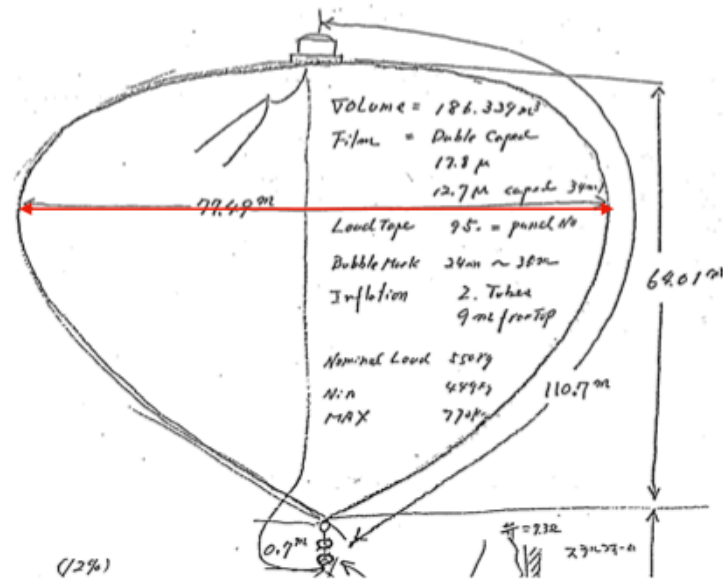 Volume = 186.329 m³
Film = Duble Caped
17.8 μ
12.7 μ caped 34m
77.49 m
Load Tape 95. = panel No
Bubble Mark 24m ~ 30m
Inflation 2. Tubes
9 m from Top
64.01 m
Nominal Load 550 Kg
Min 449 Kg
MAX 770 Kg
110.7 m
0.7 m
(12%)